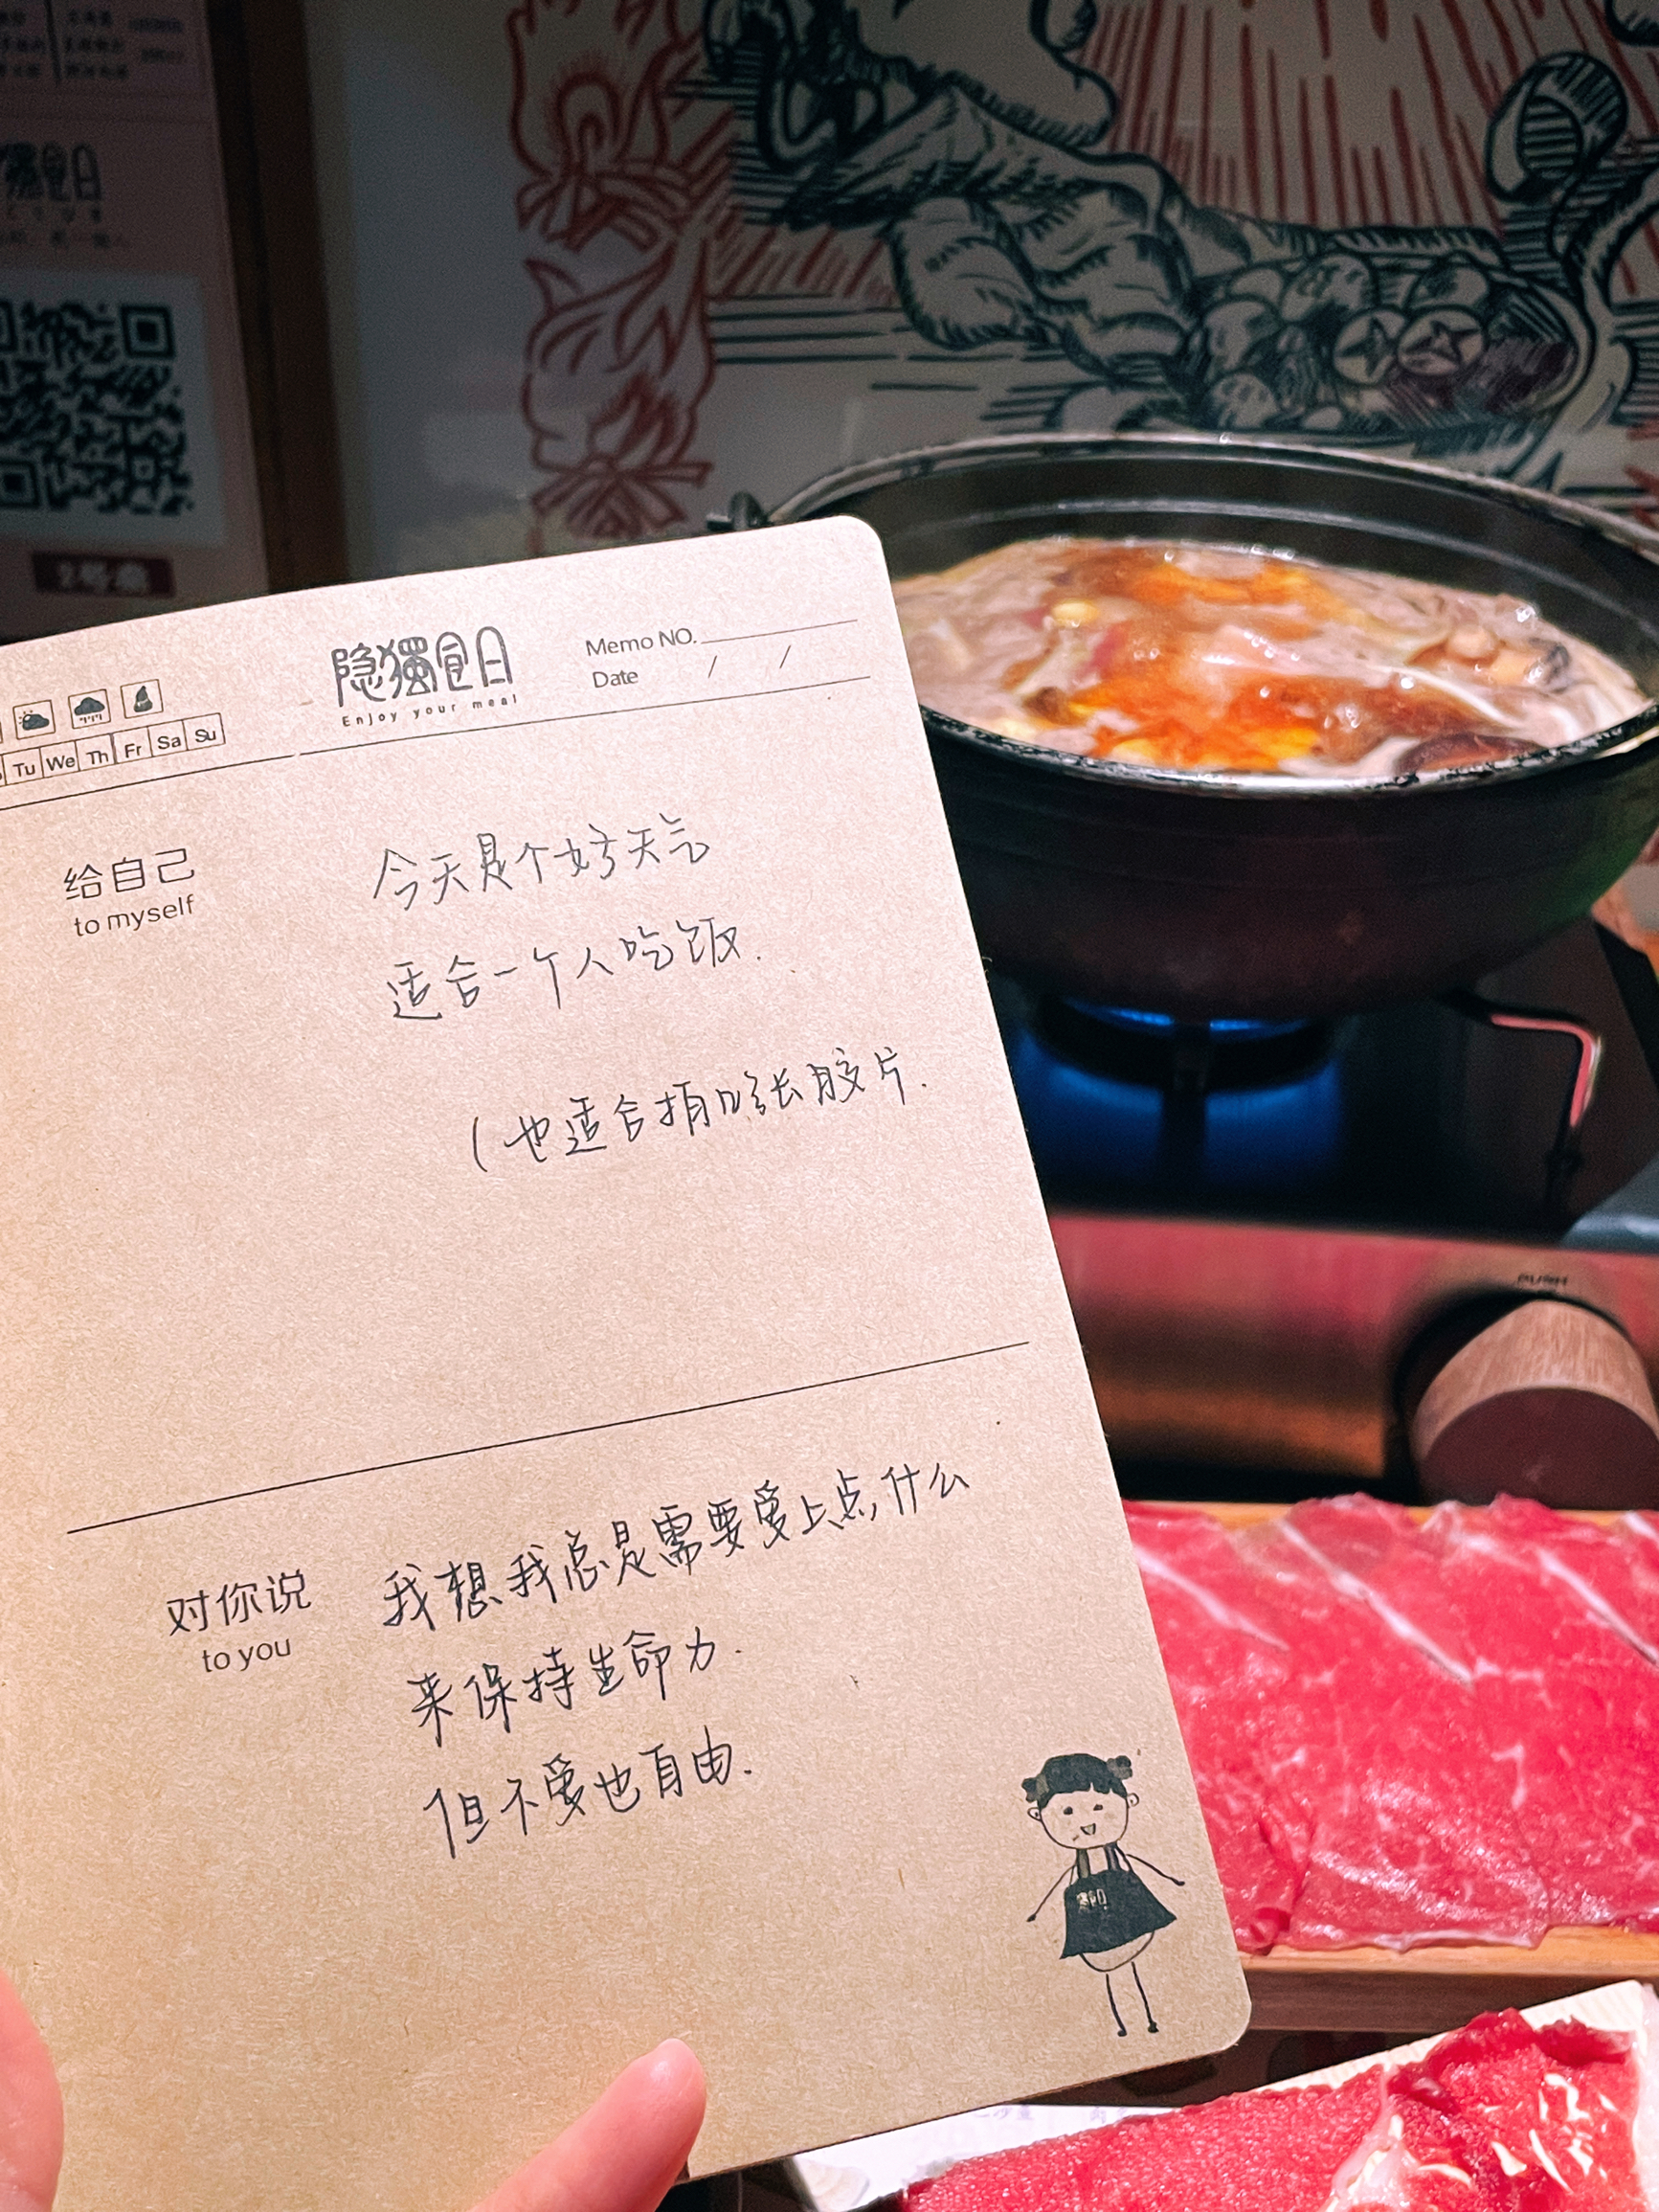 隐獨食日
Enjoy your meal
Memo NO.
Date / /
Tu We Th Fr Sa Su
给自己
to myself
今天是个好天气
适合一个人吃饭.
(也适合拍几张胶片.
对你说
to you
我想我总是需要爱上点什么
来保持生命力.
但不爱也自由.
PUSH